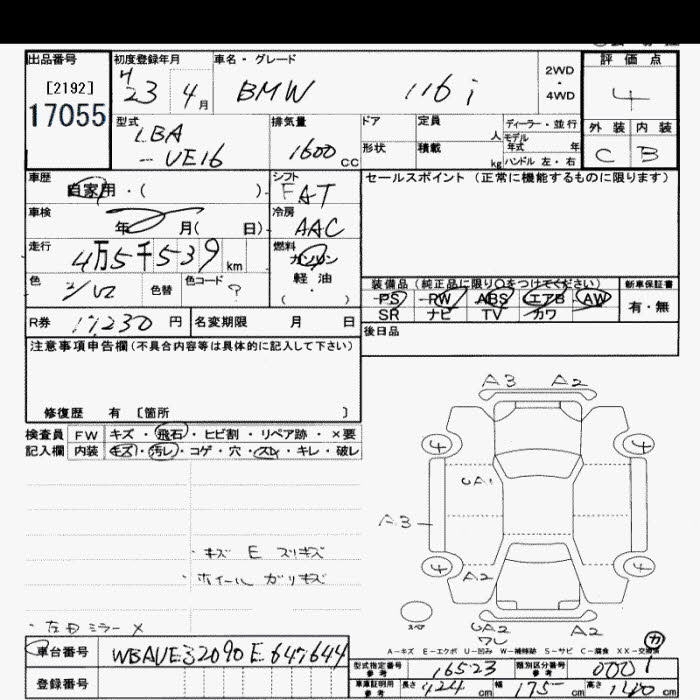 出品番号 初度登録年月 車名・グレード 2WD・4WD 評価点
[2192] H23 4月 BMW 116i 4
17055
型式 排気量 ドア 定員 人 ディーラー・並行 外装 内装
LBA-UE16 1600cc 形状 積載 kg モデル年式 年 C B
ハンドル 左・右
車歴 自家用・( ) シフト FAT セールスポイント(正常に機能するものに限ります)
車検 年 月( 日) 冷房 AAC
走行 4万5千539km 燃料 ガソリン
軽油
( ・ )
色 色替 色コード
装備品(純正品に限り○をつけてください) 新車保証書
PS PW ABS エアB AW 有・無
SR ナビ TV カワ
R券 11,230円 名変期限 月 日 後日品
注意事項申告欄(不具合内容等は具体的に記入して下さい)
修復歴 有 [箇所 ]
検査員 FW キズ・飛石・ヒビ割・リペア跡・×要
記入欄 内装 キズ・汚レ・コゲ・穴・スレ・キレ・破レ
A3 A2
4 4
UA1
A3
4 4
A2
・キズ E スリキズ
・ホイール ガリキズ
スペア
UA2 A2
・左右ミラー ×
A-キズ E-エクボ U-凹み W-補修跡 S-サビ C-腐食 XX-交換済
車台番号 WBAUE32090E647644
登録番号
型式指定番号 参考 16523 類別区分番号 参考 0001
車庫証明用 参考 長さ 424cm 幅 175cm 高さ cm